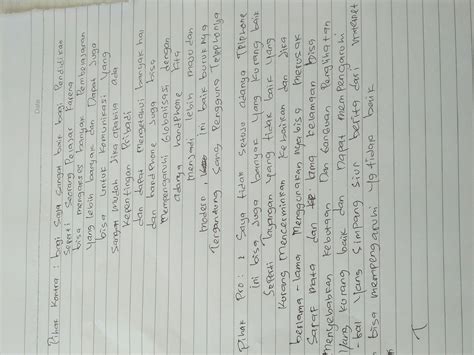 Date
Pihak Kontra : bagi saya sangat baik bagi Pendidikan
seperti Seorang Pelajar karena
bisa mengakses banyak Pembelajaran
yang lebih banyak dan Dapat Juga
bisa untuk komunikasi yang
Sangat mudah Jika apabila ada
Kepentingan Pribadi
dan dapat Mengetahui banyak hal
dan handphone Juga bisa
Mempengaruhi Globalisasi dengan
adanya handphone kita
menjadi lebih maju dan
modern, Ini baik buruknya
Tergantung Sang Pengguna Telephonya
Pihak Pro : Saya tidak setuju adanya Telphone
Ini bisa Juga banyak yang kurang baik
Seperti Tayangan yang tidak baik yang
Kurang Mencerminkan Kebaikan dan Jika
berlama - lama Menggunakannya bisa merusak
Saraf mata dan lama kelamaan bisa
menyebabkan Kebutaan Dan Gangguan Penglihatan
Yang kurang baik dan Dapat mempengaruhi
- hal yang simpang siur berita dari Internet
bisa mempengaruhi yg tidak baik